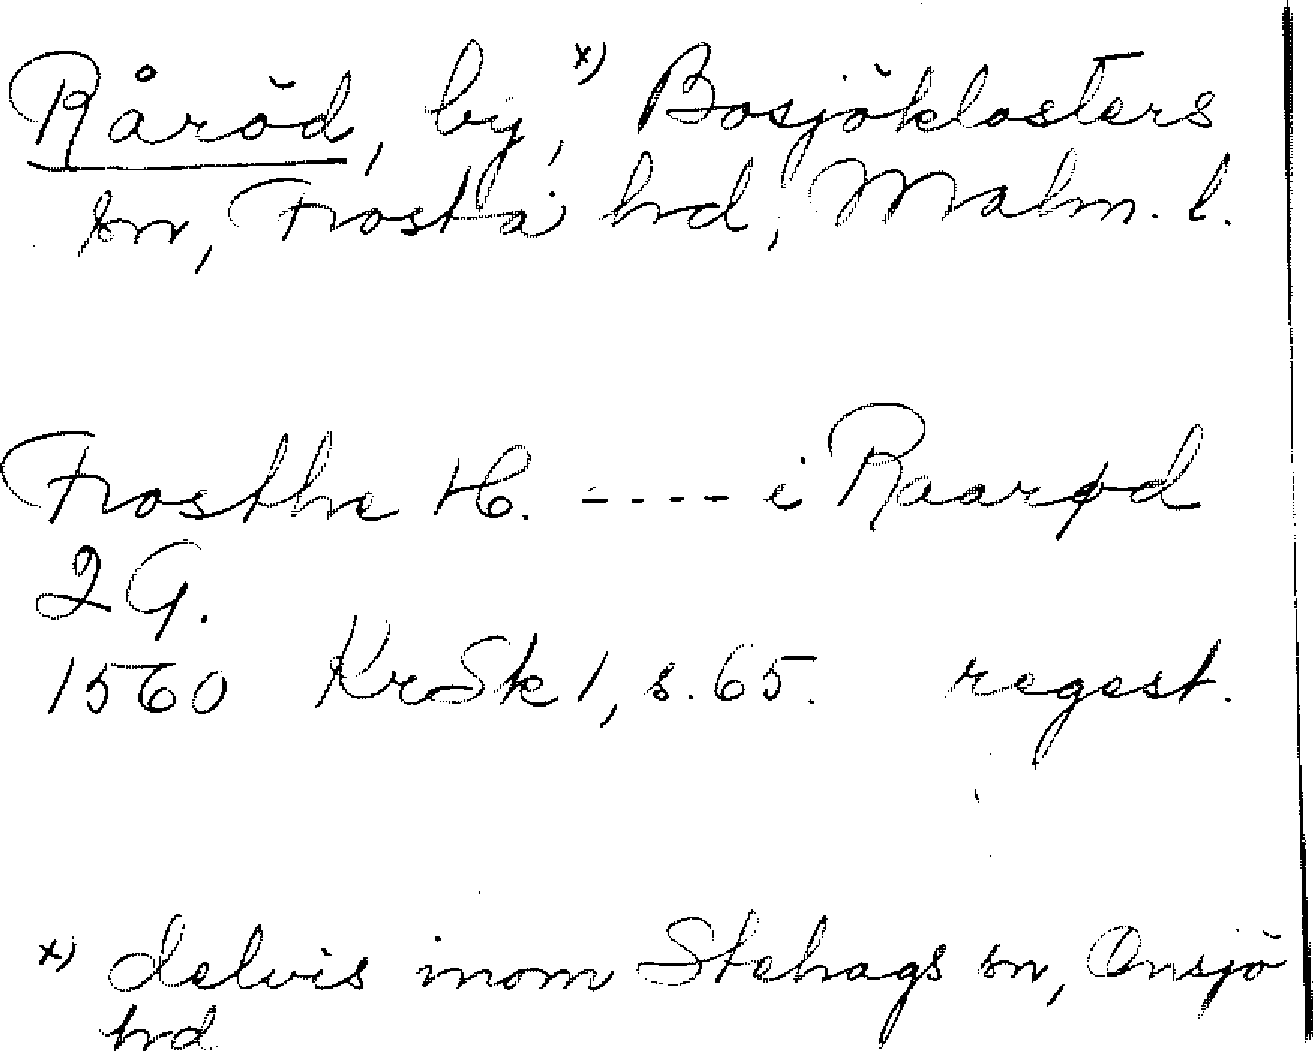 Råröd, by, x) Bosjöklosters
sn, Frosta hrd, Malm. l.
Frosthe H. ---- i Raarød
2 G.
1560 KrSk 1, s. 65. regest.
x) delvis inom Stehags sn, Onsjö
hrd